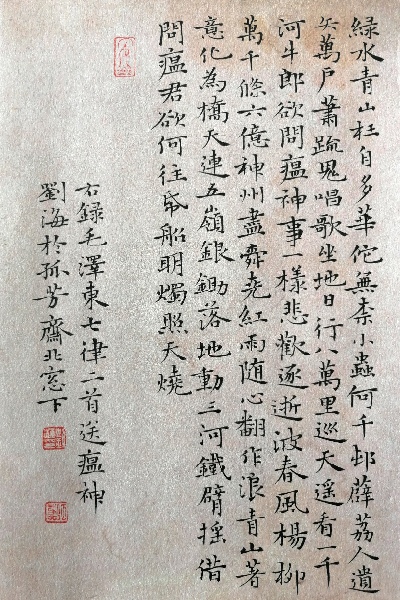 綠水青山枉自多華佗無柰小蟲何千邨薜荔人遺
矢萬戶蕭疏鬼唱歌坐地日行八萬里巡天遙看一千
河牛郎欲問瘟神事一樣悲歡逐逝波春風楊柳
萬千條六億神州盡舜堯紅雨随心翻作浪青山著
意化為橋天連五嶺銀鋤落地動三河鐵臂搖借
問瘟君欲何往帋船明燭照天燒
右録毛澤東七律二首送瘟神
劉海於孤芳齋北窓下